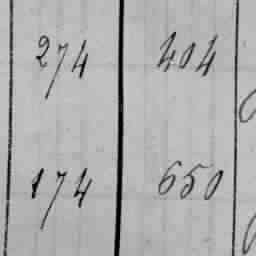 274 404
174 650